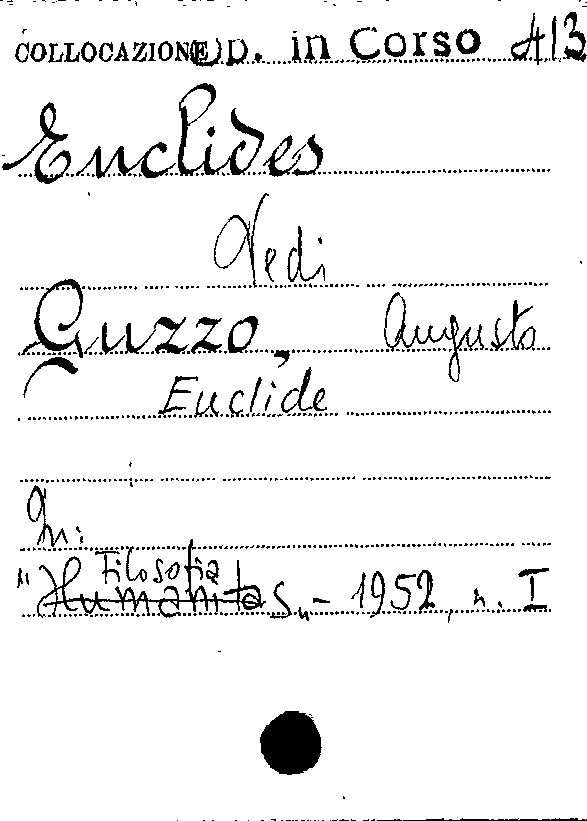 COLLOCAZIONE Op. in Corso A13
Euclides
Vedi
Guzzo, Augusto
Euclide
In:
Filosofia
"Humanitas" - 1952, n. I